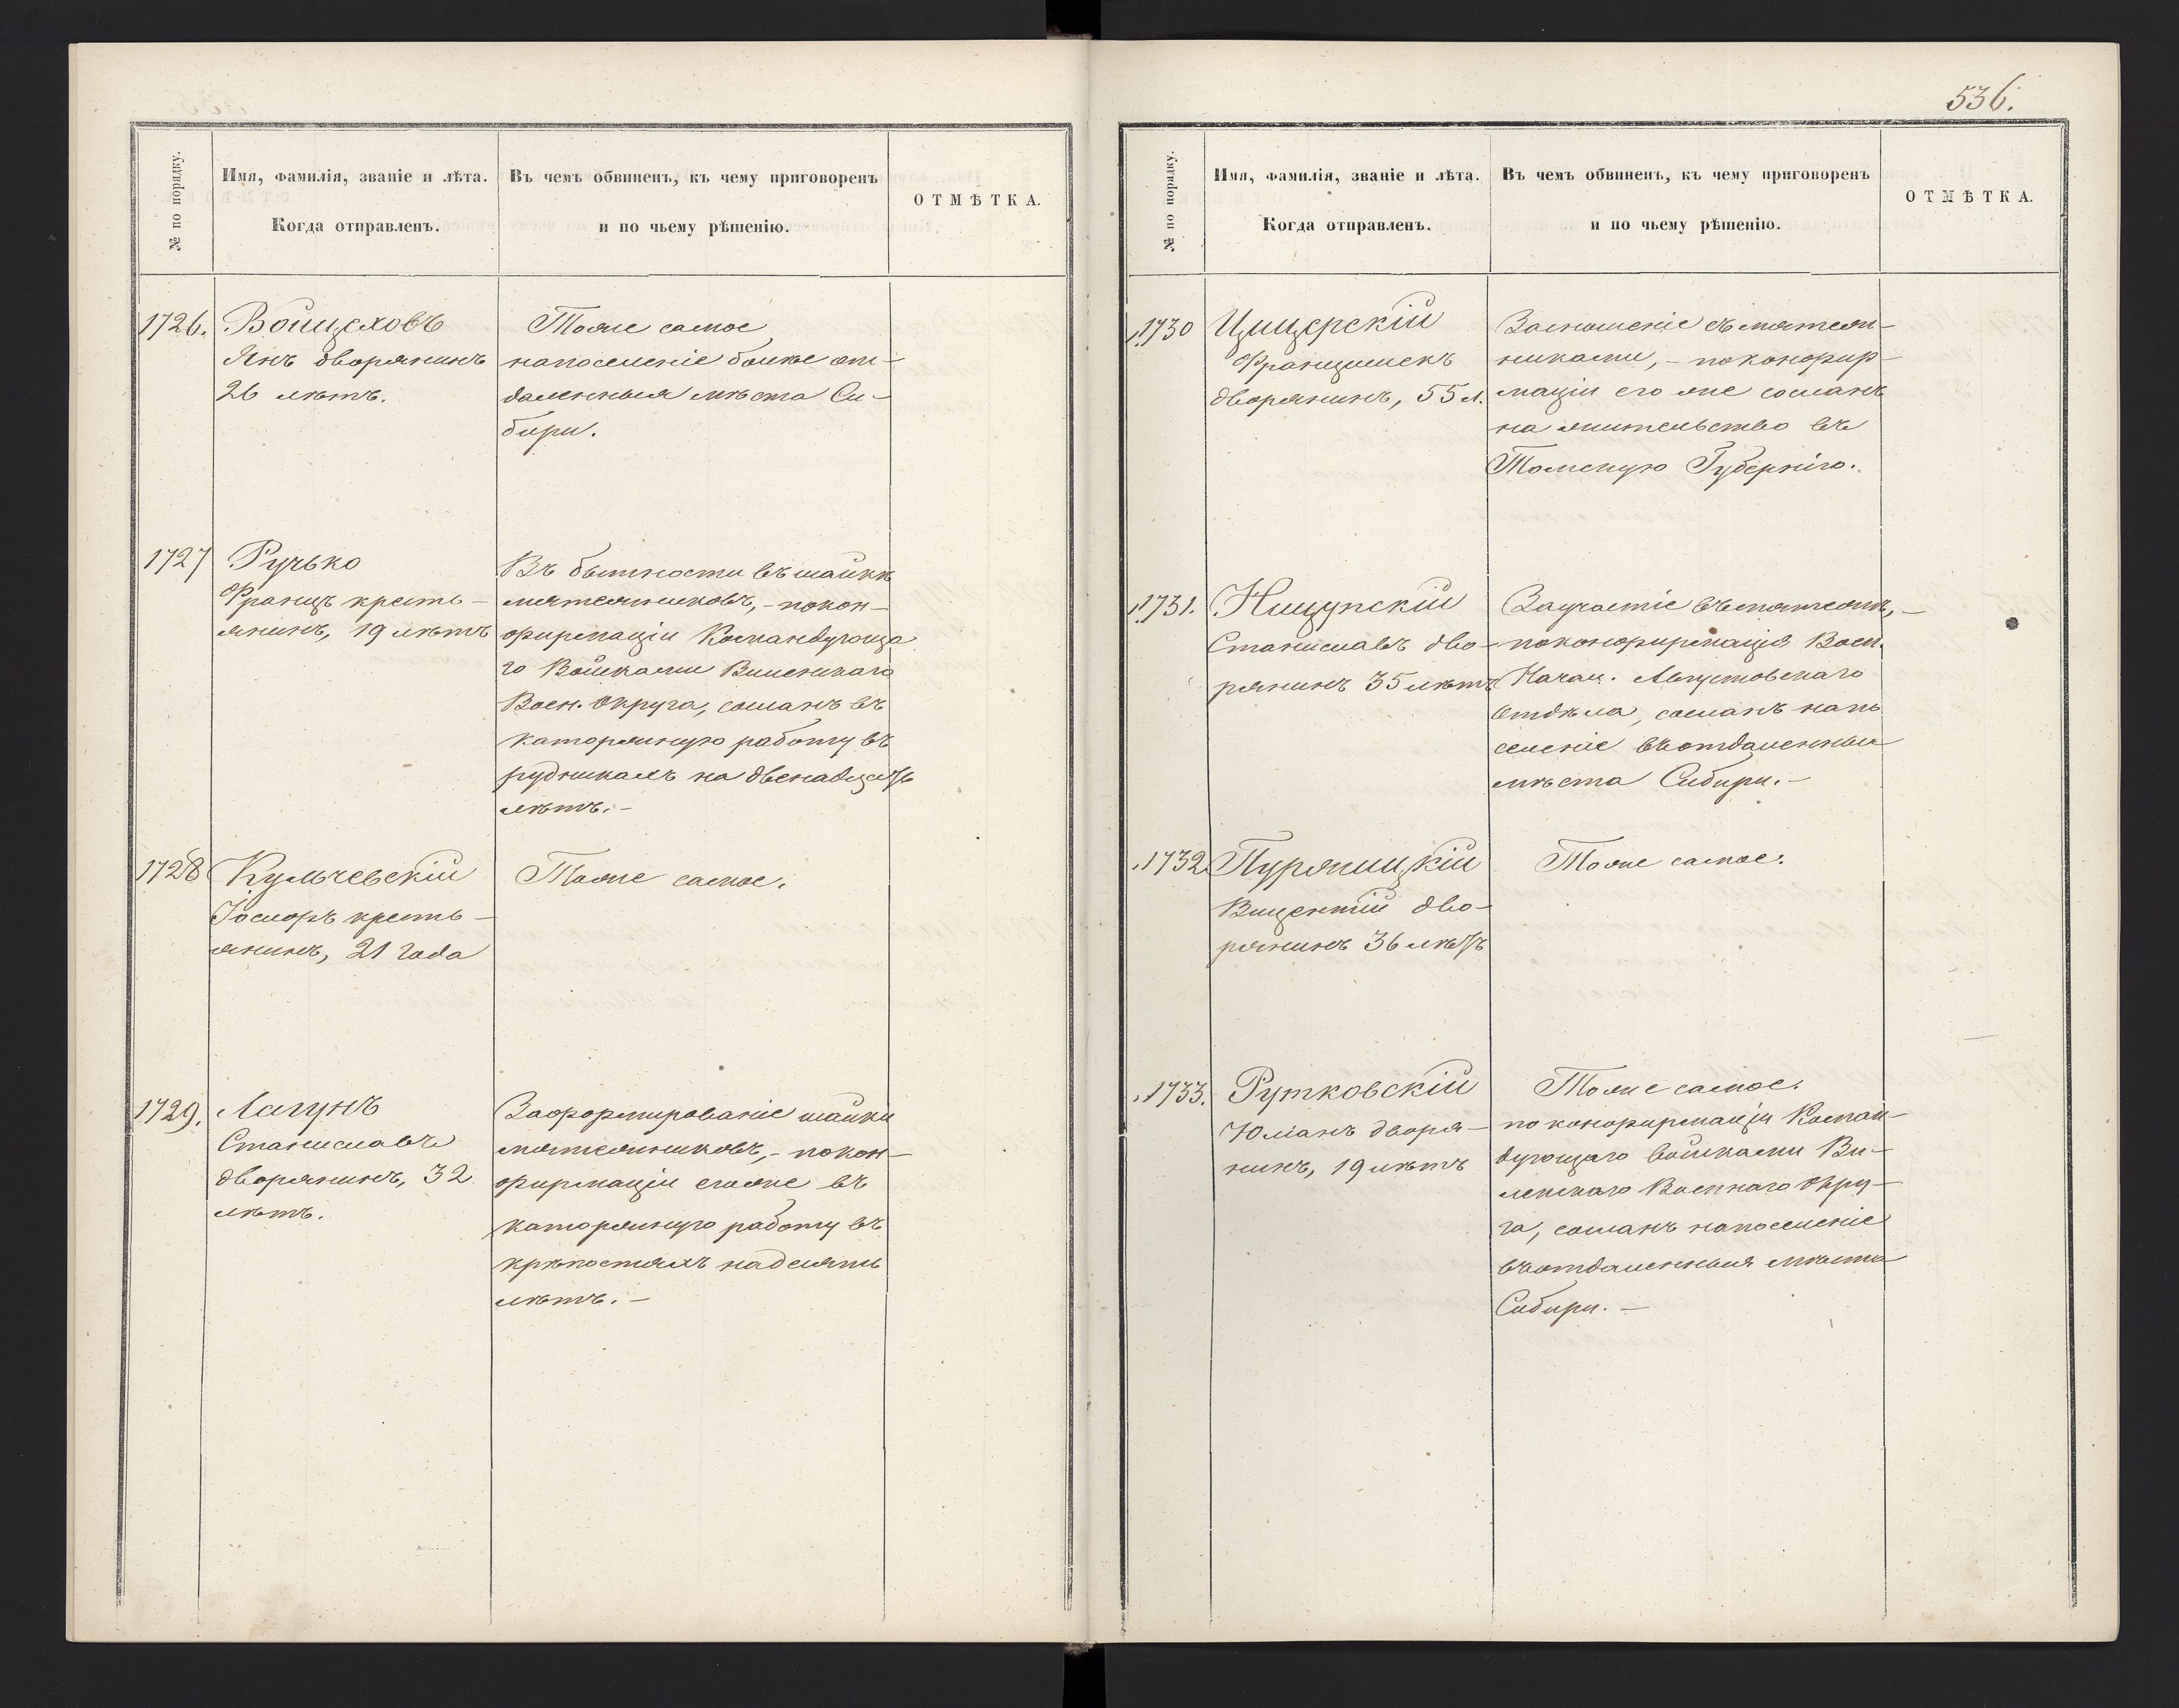 536.
№ по порядку.
Имя, фамилія, званіе и лѣта.
Когда отправленъ.
Въ чемъ обвиненъ, къ чему приговоренъ
и по чьему рѣшенію.
ОТМѢТКА.
1726.
Войцеховъ
Янъ дворянинъ
26 лѣтъ.
Тоже самое
напоселеніе болѣе от-
даленныя мѣста Си-
бири.
1727
Ручько
Францъ кресть-
янинъ, 19 лѣтъ
Въ бытности въ шайкѣ
мятежниковъ, - покон-
фирмаціи Командующа
го Войсками Виленскаго
Воен. Округа, сосланъ въ
каторжную работу въ
рудникахъ на двенадцать
лѣтъ. -
1728
Кульчевскій
Іосифъ кресть-
янинъ, 21 года
Тоже самое.
1729.
Лагунъ
Станиславъ
дворянинъ, 32
лѣтъ.
Заформированіе шайки
мятежниковъ, - покон-
фирмаціи егоже въ
каторжную работу въ
крѣпостяхъ надесять
лѣтъ. -
№ по порядку.
Имя, фамилія, званіе и лѣта.
Когда отправленъ.
Въ чемъ обвиненъ, къ чему приговоренъ
и по чьему рѣшенію.
ОТМѢТКА.
1730
Цицерскій
Францишекъ
дворянинъ, 55 л.
Засношеніе съ мятеж-
никами, - поконфир-
маціи его же сосланъ
на жительство въ
Томскую Губернію.
1731.
Станиславъ дво-
рянинъ 35 лѣтъ
Заучастіе въ мятежѣ, -
поконфирмація Воен.
Начал. Августовскаго
Отдѣла, сосланъ напо
селеніе въ отдаленныя
мѣста Сибири. -
1732
Пуржицкій
Вицентій дво-
рянинъ 36 лѣтъ
Тоже самое.
1733.
Рутковскій
Юліанъ дворя-
нинъ, 19 лѣтъ
Тоже самое.
по конфирмаціи Коман-
дующаго войсками Ви-
ленскаго Военнаго Окру-
га, сосланъ напоселеніе
въ отдаленныя мѣста
Сибири. -